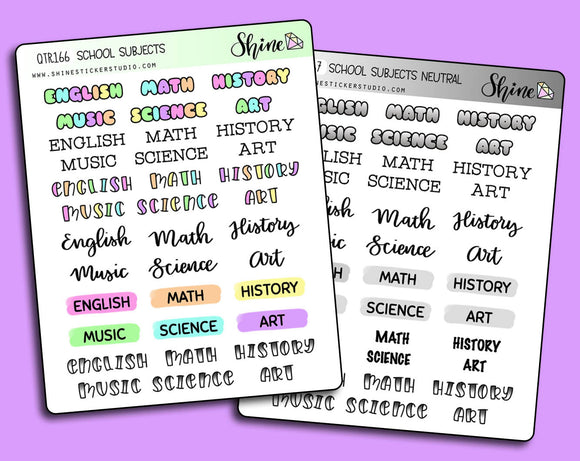 QTR166 SCHOOL SUBJECTS Shine
WWW.SHINESTICKERSTUDIO.COM
ENGLISH MATH HISTORY
MUSIC SCIENCE ART
ENGLISH MATH HISTORY
MUSIC SCIENCE ART
ENGLISH MATH HISTORY
MUSIC SCIENCE ART
English Math History
Music Science Art
ENGLISH MATH HISTORY
MUSIC SCIENCE ART
ENGLISH MATH HISTORY
MUSIC SCIENCE ART
7 SCHOOL SUBJECTS NEUTRAL Shine
NESTICKERSTUDIO.COM
GLISH MATH HISTORY
SIC SCIENCE ART
LISH MATH HISTORY
SIC SCIENCE ART
ISH MATH HISTORY
IC SCIENCE ART
ish Math History
ic Science Art
ISH MATH HISTORY
SCIENCE ART
MATH HISTORY
SCIENCE ART
SH MATH HISTORY
MUSIC SCIENCE ART